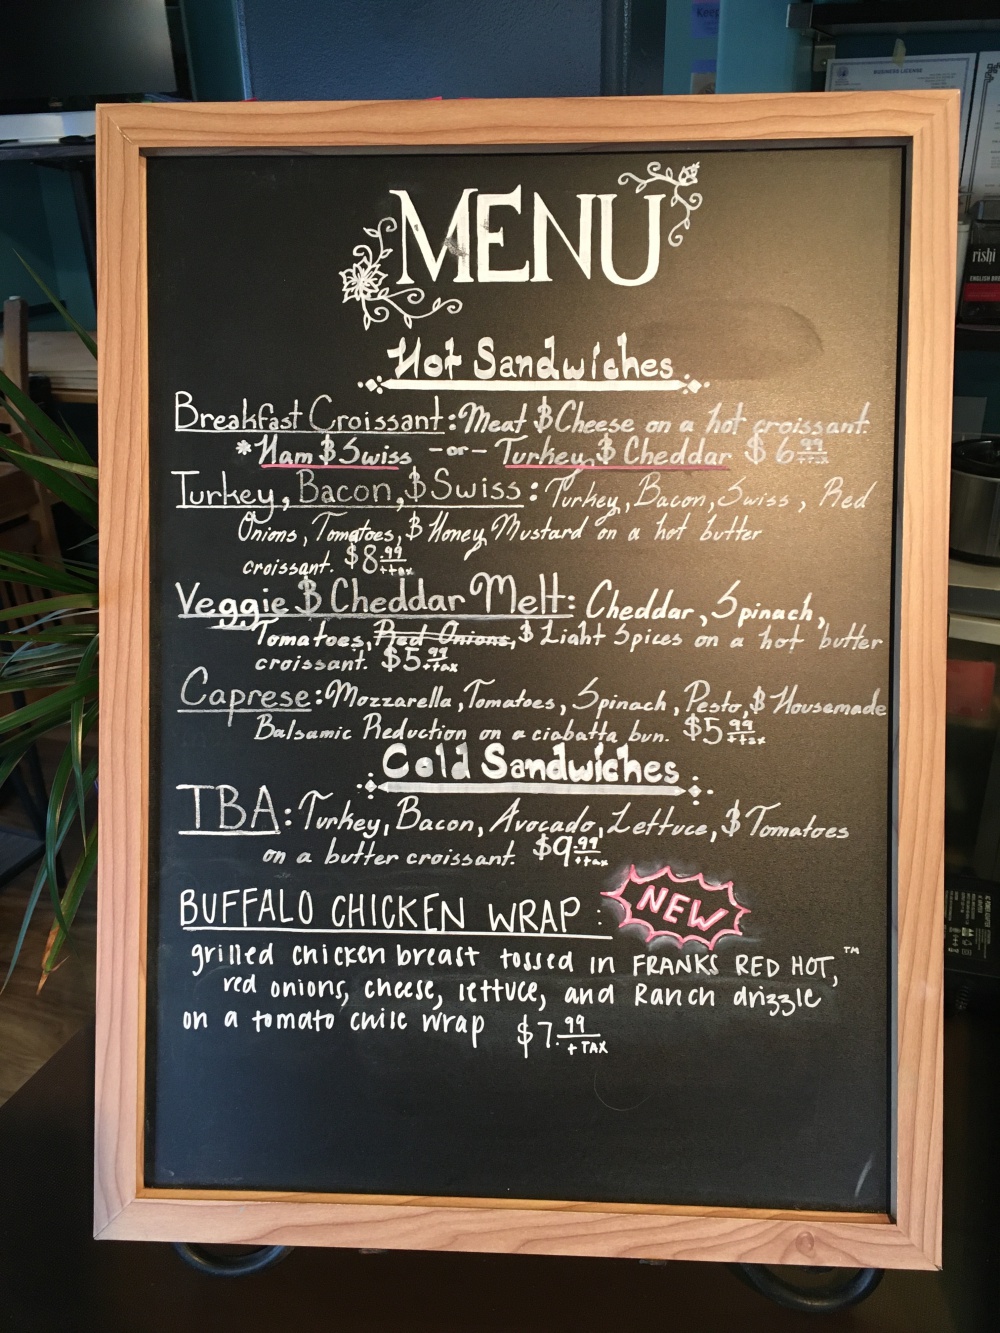 Keep
BUSINESS LICENSE
MENU
Hot Sandwiches
Breakfast Croissant: Meat & Cheese on a hot croissant.
*Ham & Swiss -or- Turkey & Cheddar $6.99 +tax
Turkey, Bacon, & Swiss: Turkey, Bacon, Swiss, Red
Onions, Tomatoes, & Honey Mustard on a hot butter
croissant. $8.99 +tax
Veggie & Cheddar Melt: Cheddar, Spinach,
Tomatoes, Red Onions, & Light Spices on a hot butter
croissant. $5.99 +tax
Caprese: Mozzarella, Tomatoes, Spinach, Pesto, & Housemade
Balsamic Reduction on a ciabatta bun. $5.99 +tax
Cold Sandwiches
TBA: Turkey, Bacon, Avocado, Lettuce, & Tomatoes
on a butter croissant. $9.99 +tax
BUFFALO CHICKEN WRAP: NEW
grilled chicken breast tossed in FRANKS RED HOT,™
red onions, cheese, lettuce, and Ranch drizzle
on a tomato chile wrap $7.99 + TAX
rishi